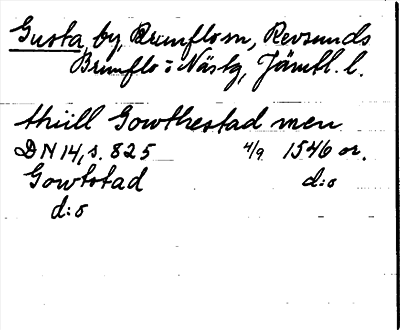 Gusta by, Brunflo sn, Revsunds
Brunflo o Näs tg, Jämtl. l.
thiill Gowthestad men
DN 14, s. 825 4/9 1546 or.
Gowtstad d:o
d:o